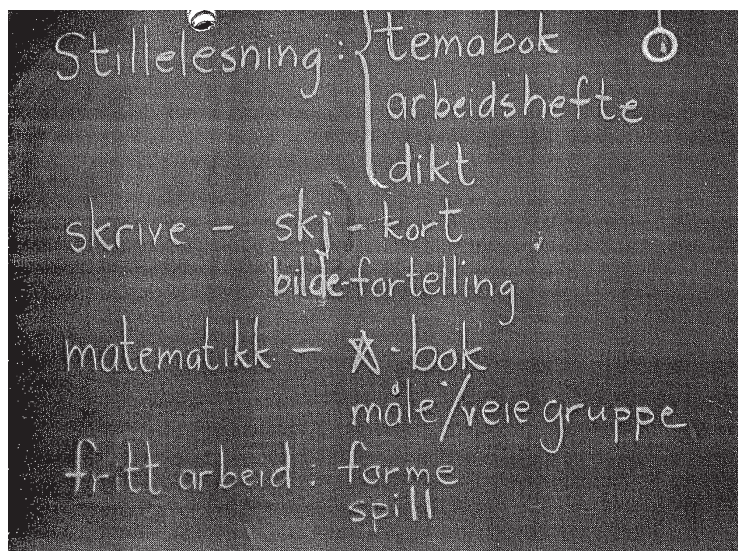 Stillelesning: { temabok
arbeidshefte
dikt
skrive - skj - kort
bilde-fortelling
matematikk - ☆ - bok
måle/veie gruppe
fritt arbeid: forme
spill